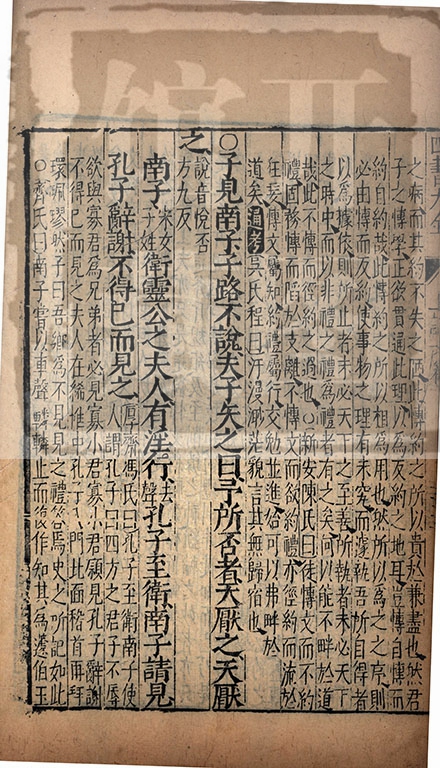 之病而其約不失之陋此博約之所以貴於兼盡也然君
子之博學正欲貫通此理以為反約之地耳豈博自博而
約自約哉此博約之所以相為用也然所以為之之序則
必由博而反約使事物之理有未究而遽執吾所自得者
以為據依則所止者未必天下之至善所執者未必天下
之時中而以非禮之禮為禮者有之矣何以能不畔於道
哉此不博而徑約之過也○新安陳氏曰徒博文而不約
禮固務博而陷於支離不博文而欲約禮亦徑約而流於
狂妄博文屬知約禮屬行交勉並進始可以弗畔於
道矣通考吳氏程曰汗漫渺茫貌言其無歸宿也
○子見南子子路不說夫子矢之曰予所否者天厭之天厭
之說音悅否方九反
南子宋女子姓衛靈公之夫人有淫行去聲孔子至衛南子請見
孔子辭謝不得已而見之厚齋馮氏曰孔子至衛南子使人謂孔子曰四方之君子不辱
欲與寡君為兄弟者必見寡小君寡小君願見孔子辭謝
不得已而見之夫人在絺帷中孔子入門北面稽首再拜
環珮璆然子曰吾鄉為不見見之禮答焉史之所記如此
○齊氏曰南子嘗以車聲轔轔止而復作知其為蘧伯玉